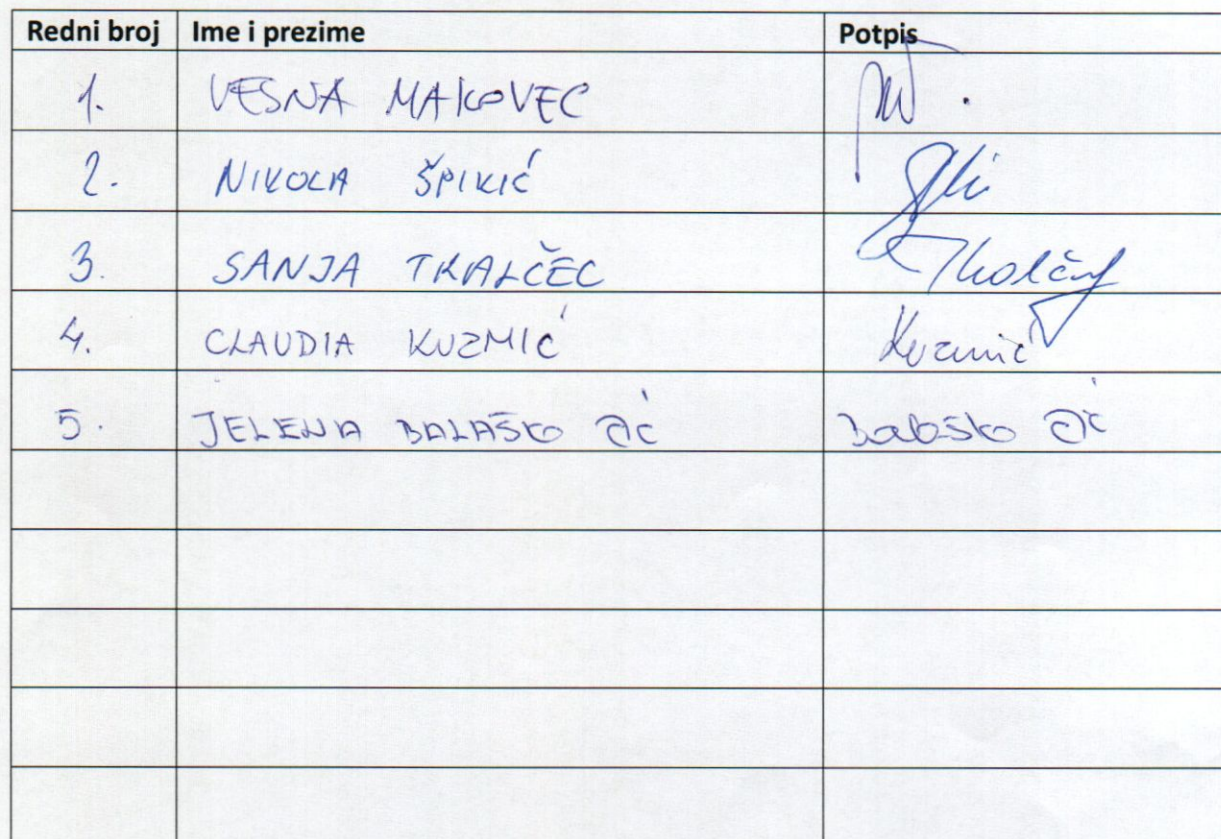 Redni broj Ime i prezime Potpis
1. VESNA MAKOVEC
2. NIKOLA ŠPIKIĆ
3. SANJA TKALČEC Tkalčec
4. CLAUDIA KUZMIĆ Kuzmić
5. JELENA BALAŠKO Balaško